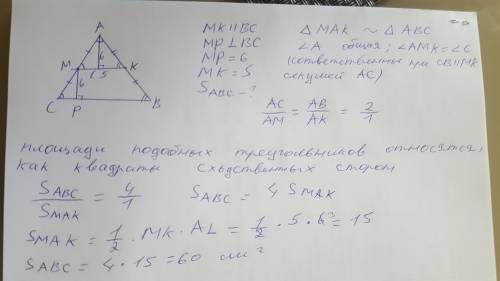 A
M
K
6
L
5
6
C
P
B
MK || BC
MP ⊥ BC
MP = 6
MK = 5
S_ABC - ?
△ MAK ~ △ ABC
∠A общая; ∠AMK = ∠C
(соответственные при CB || MK
секущей AC)
AC/AM = AB/AK = 2/1
площади подобных треугольников относятся,
как квадраты сходственных сторон
S_ABC/S_MAK = 4/1 S_ABC = 4 S_MAK
S_MAK = 1/2 · MK · AL = 1/2 · 5 · 6³ = 15
S_ABC = 4 · 15 = 60 см²